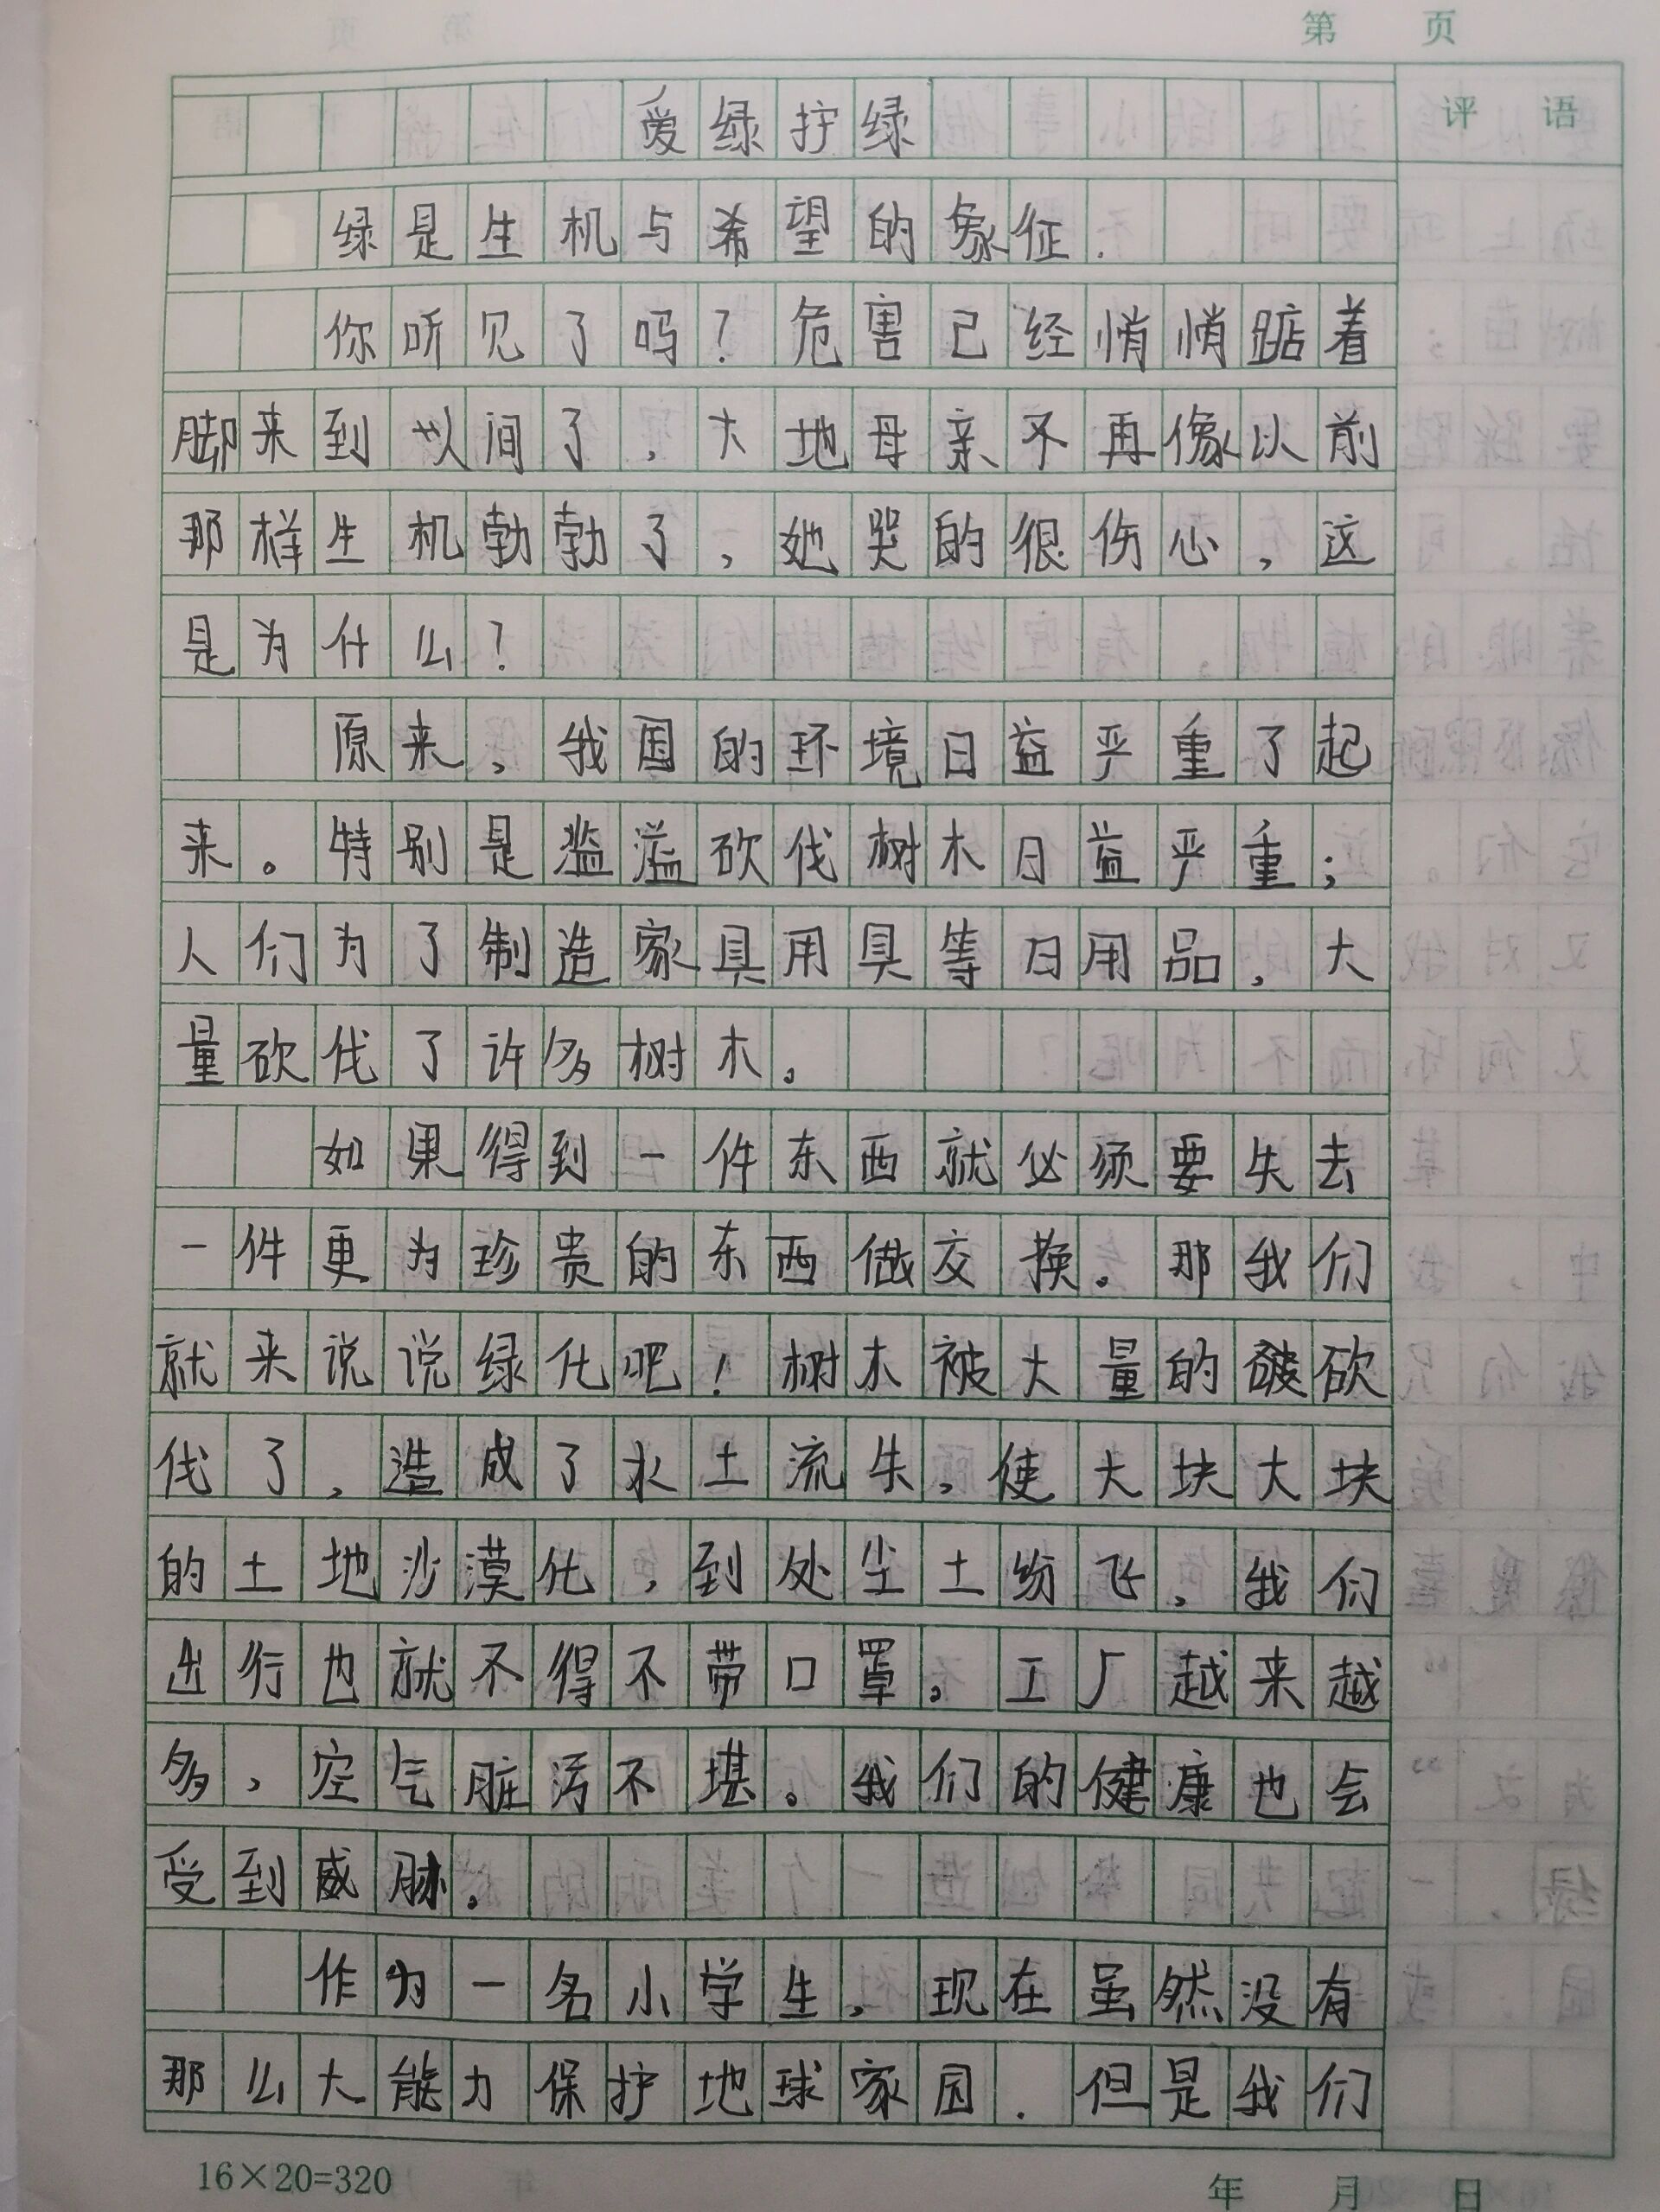 第 页
评 语
爱绿护绿
绿是生机与希望的象征.
你听见了吗?危害已经悄悄踮着
脚来到 间了,大地母亲不再像以前
那样生机勃勃了,她哭的很伤心,这
是为什么?
原来,我国的环境日益严重了起
来。特别是滥滥砍伐树木日益严重;
人们为了制造家具用具等日用品,大
量砍伐了许多树木。
如果得到一件东西就必须要失去
一件更为珍贵的东西做交换。那我们
就来说说绿化吧!树木被大量的破砍
伐了,造成了水土流失,使大块大块
的土地沙漠化,到处尘土纷飞,我们
出行也就不得不带口罩。工厂越来越
多,空气脏污不堪。我们的健康也会
受到威胁。
作为一名小学生,现在虽然没有
那么大能力保护地球家园.但是我们
16×20=320
年 月 日